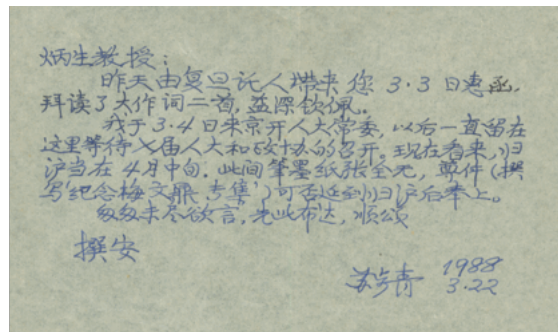 炳生教授：
昨天由复旦托人带来您3.3日惠函，
拜读了大作词二首，益深钦佩。
我于3.4日来京开人大常委，以后一直留在
这里等待七届人大和政协的召开。现在看来，归
沪当在4月中旬。此间笔墨纸张全无，尊件（撰
写'纪念梅文鼎专集'）可否延到归沪后奉上。
匆匆未尽欲言，先此布达，顺颂
撰安
苏步青 1988
3.22